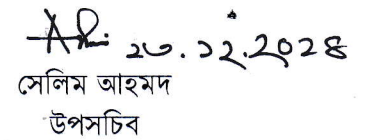 ২৩.১২.২০২৪
সেলিম আহমদ
উপসচিব